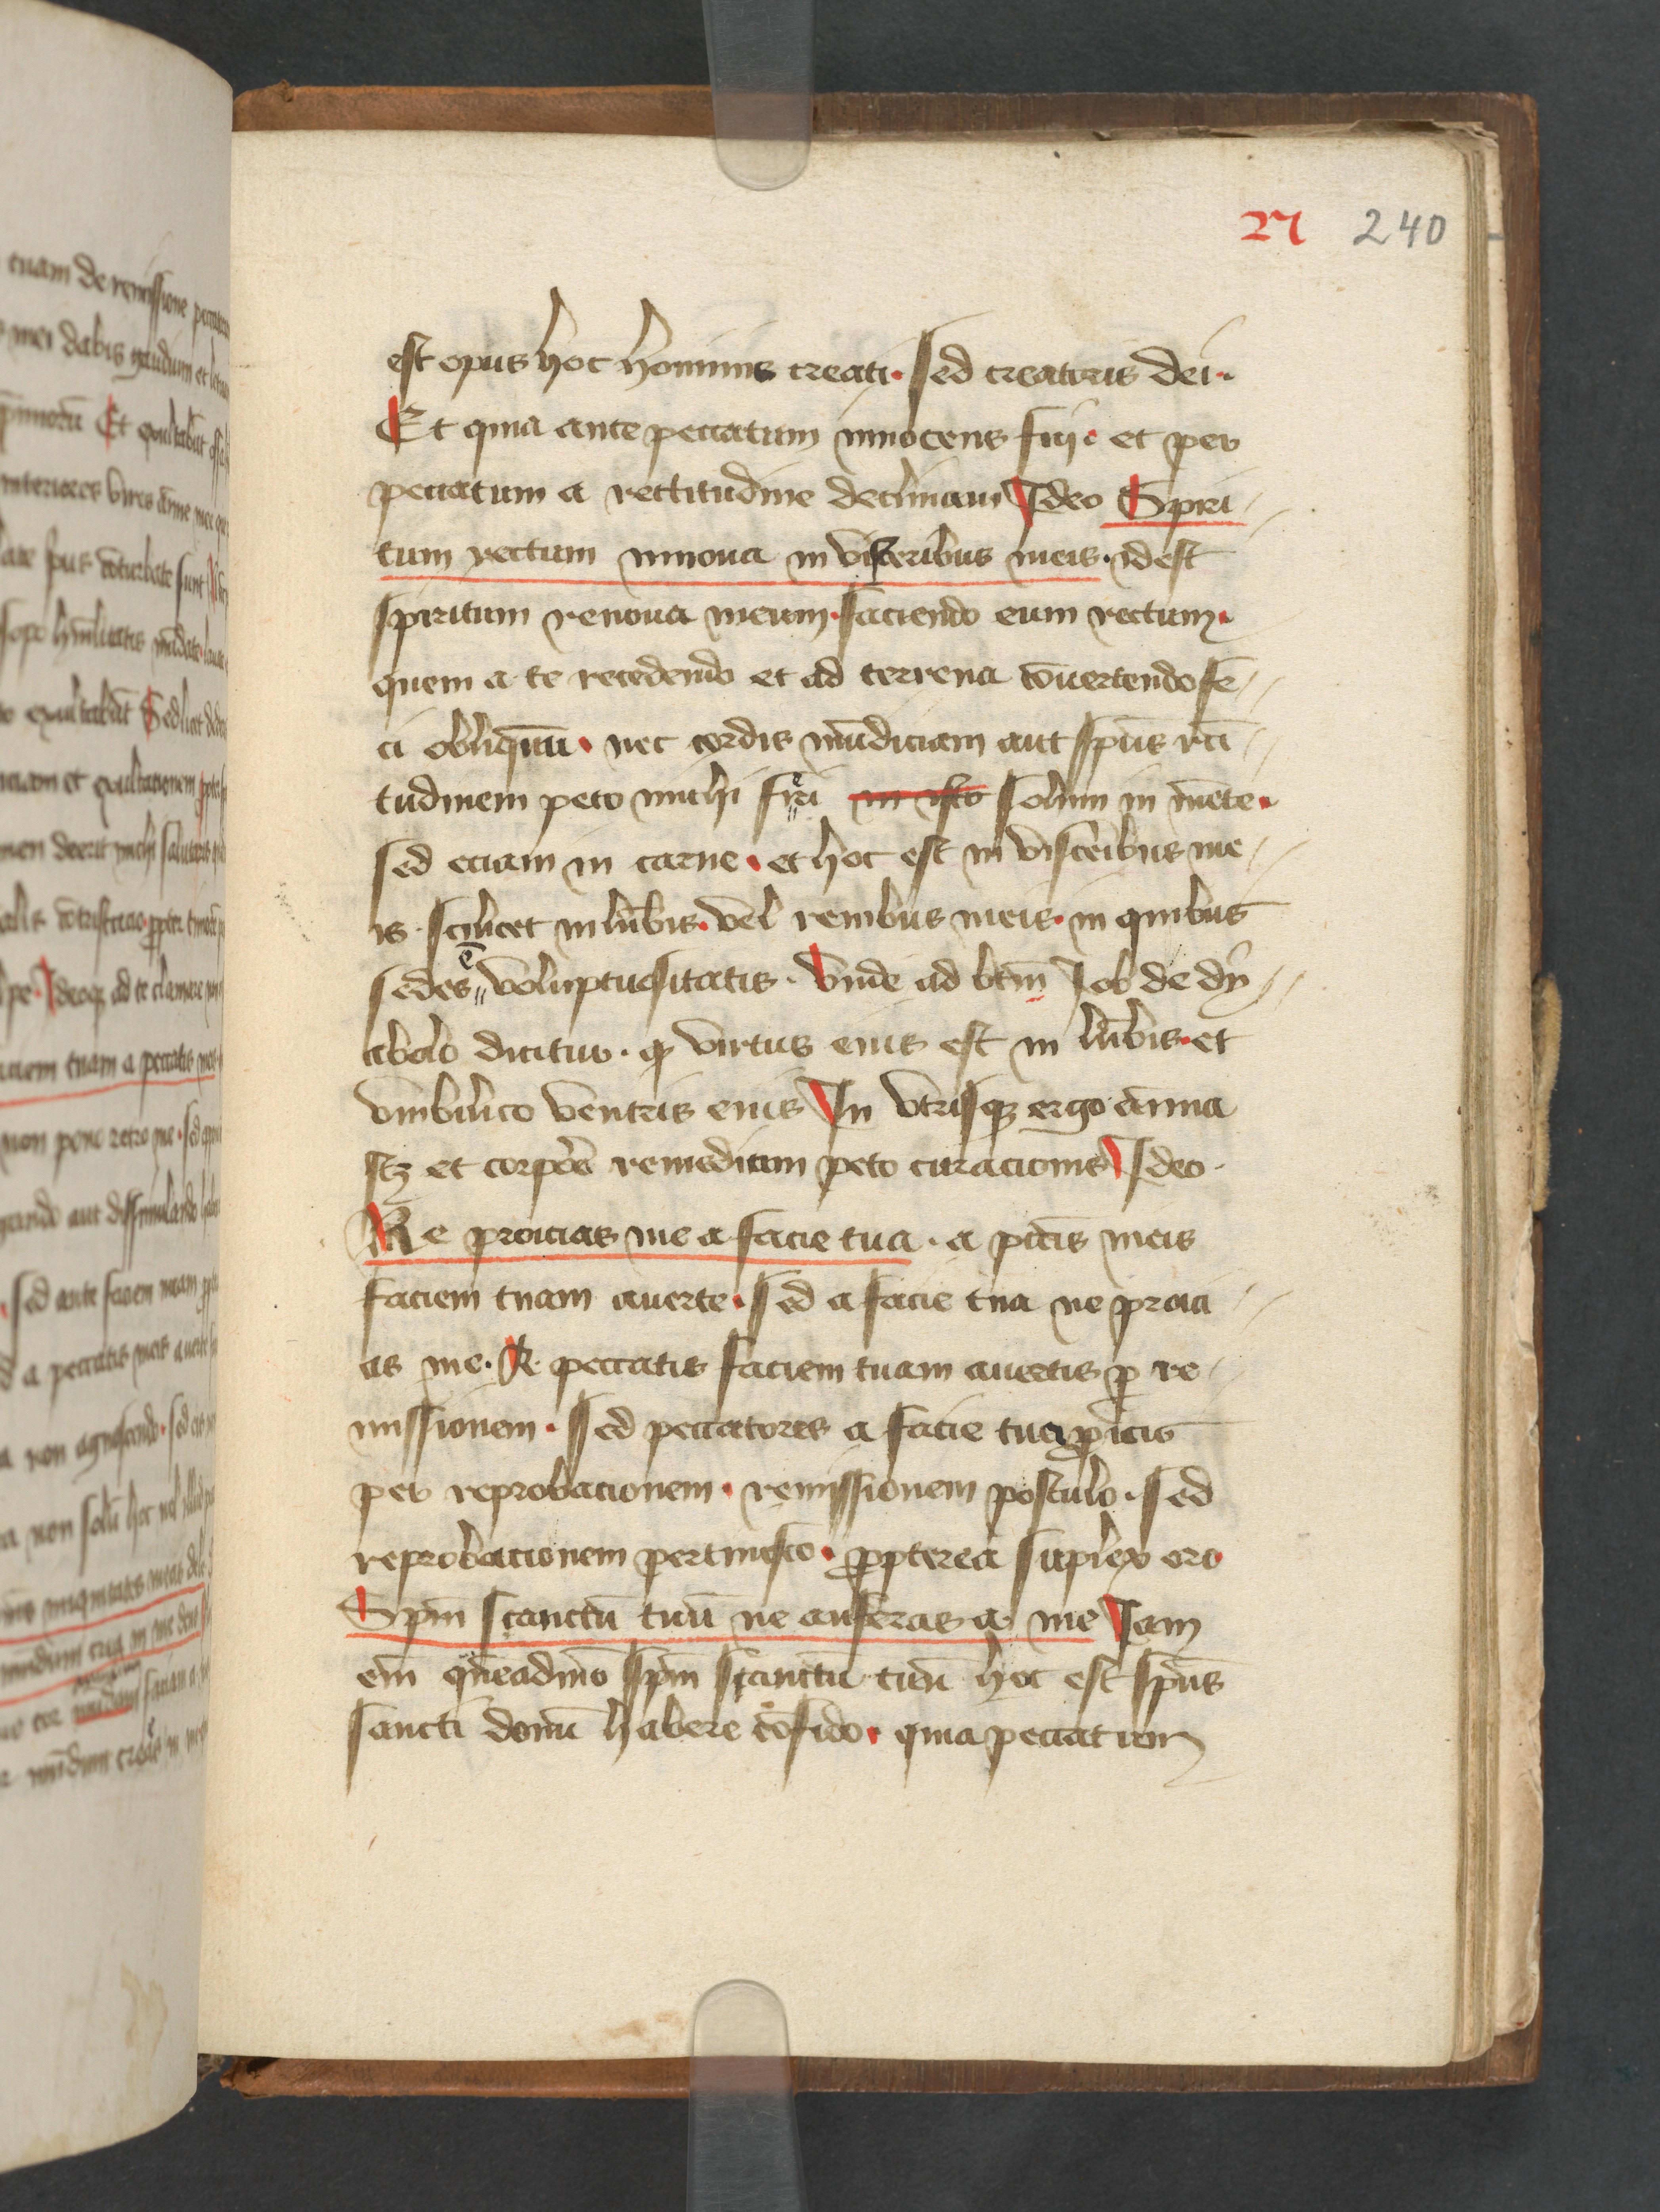 27 240
est opus hoc hominis creati. sed creatoris dei.
Et quia ante peccatum innocens fui. et per
peccatum a rectitudine declinaui Ideo Spiri
tum rectum innoua in visceribus meis. idest
spiritum renoua meum. faciendo eum rectum.
quem a te recedendo et ad terrena cōuertendo fe
ci obliquū. nec cordis mūdiciam aut spūs rcti
tudinem peto michi fieri in isto solum in mēte.
sed eciam in carne. et hoc est in visceribus me
is. scilicet in lūbis. vel renibus meis. in quibus
sedes ē voluptuositatis. Vnde ad btm̄ Job de dy
abolo dicitur. qͥ virtus eius est in lūbis. et
vmbilico ventris eius In vtrisqꝫ ergo anima
sꝫ et corpore remedium peto curacionis Ideo.
Ne proicias me a facie tua. a pctīs meis
faciem tuam auerte. sed a facie tua ne proici
as me. A peccatis faciem tuam auertis ꝑ re
missionem. Sed peccatores a facie tua proicis
per reprobacionem. remissionem postulo. sed
reprobacionem pertimesco. propterea suplex oro
Spm̄ sanctū tuū ne auferas a me Jam
em̄ quēadmō spm̄ sanctū tuū hoc est spūs
sancti donū habere cōfido. quia peccatum